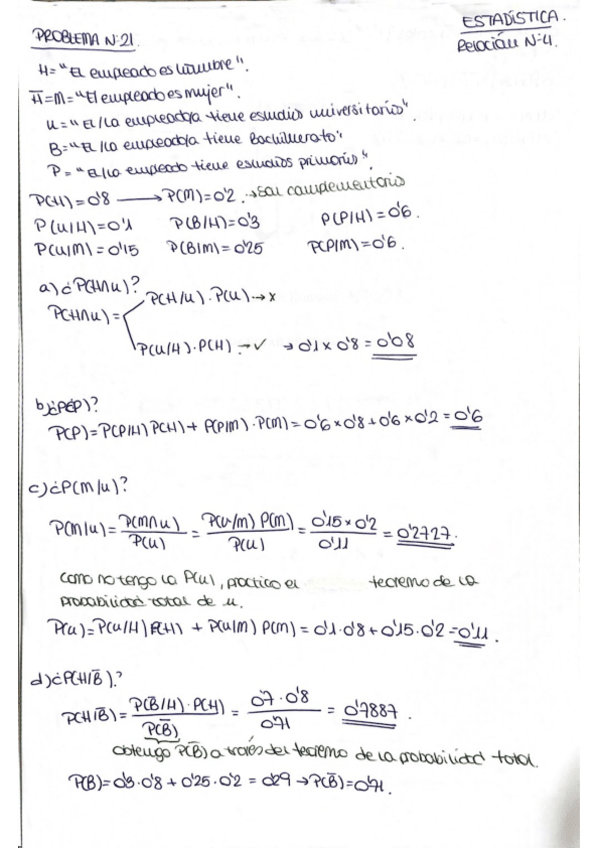 ESTADÍSTICA.
PROBLEMA Nº21.
Relación Nº4.
H= "El empleado es hombre".
H̅=M= "El empleado es mujer".
U= "El/La empleado/a tiene estudios universitarios".
B= "El/La empleado/a tiene Bachillerato".
P= "El/La empleado tiene estudios primarios".
P(H)=0'8 → P(M)=0'2. → son complementarios
P(U/H)=0'1 P(B/H)=0'3 P(P/H)=0'6.
P(U/M)=0'15 P(B/M)=0'25 P(P/M)=0'6.
a) ¿P(H∩U)?
P(H/U)·P(U) → x
P(H∩U)=
P(U/H)·P(H) → ✓ → 0'1 x 0'8 = 0'08
b) ¿P(P)?
P(P)=P(P/H)P(H)+P(P/M)·P(M)=0'6x0'8+0'6x0'2=0'6
c) ¿P(M/U)?
P(M/U)= P(M∩U)/P(U) = P(U/M)P(M)/P(U) = 0'15x0'2/0'11 = 0'2727.
Como no tengo la P(U), practico el teorema de la
probabilidad total de U.
P(U)=P(U/H)P(H) + P(U/M)P(M)=0'1·0'8+0'15·0'2=0'11.
d) ¿P(H/B̅)?
P(H/B̅)= P(B̅/H)·P(H)/P(B̅) = 0'7·0'8/0'71 = 0'7887.
obtengo P(B̅) a través del teorema de la probabilidad total.
P(B)=0'3·0'8+0'25·0'2=0'29 → P(B̅)=0'71.